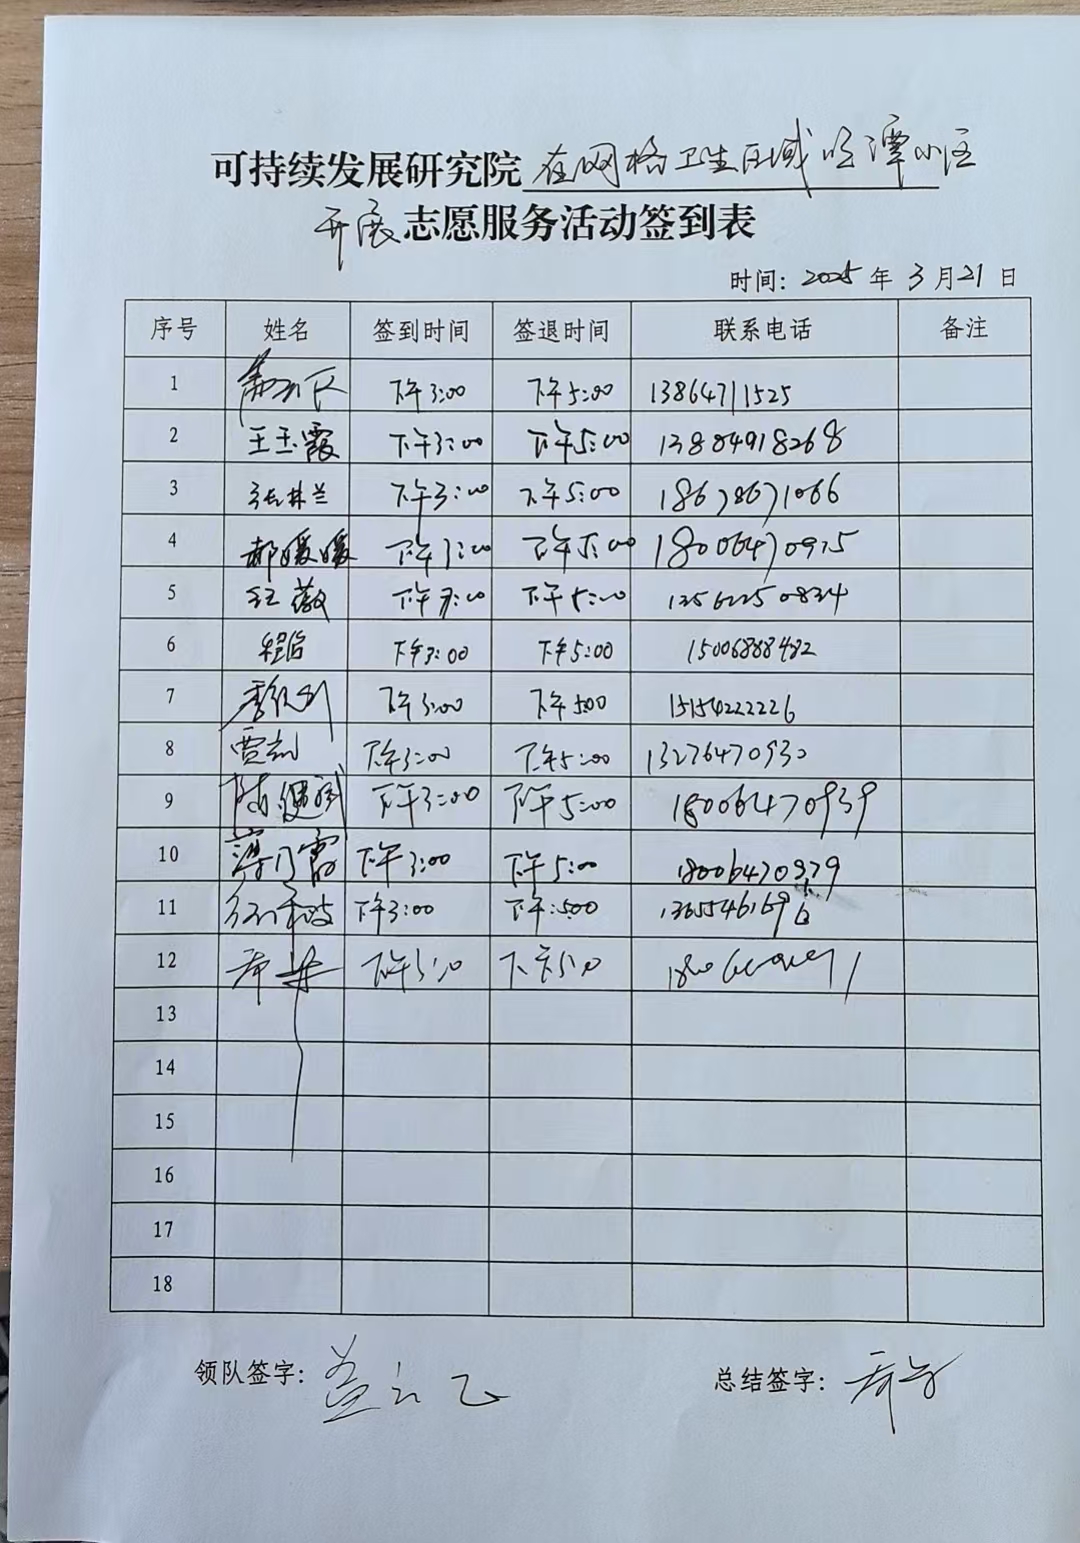 可持续发展研究院 在网格卫生区域 潭小区
开展志愿服务活动签到表
时间：2025 年 3 月 21 日
序号 姓名 签到时间 签退时间 联系电话 备注
1 下午3:00 下午5:00 13864711525
2 王玉霞 下午3:00 下午5:00 13884918268
3 张林兰 下午3:00 下午5:00 18678671066
4 郝媛媛 下午3:00 下午5:00 18006470975
5 江薇 下午3:00 下午5:00 13562250834
6 下午3:00 下午5:00 15006888482
7 下午3:00 下午500 15154222226
8 贾凯 下午3:00 下午5:00 13276470930
9 陈继斌 下午3:00 下午5:00 18006470939
10 下午3:00 下午5:00 18006470979
11 下午3:00 下午:500 13655461696
12 下午3:00
13
14
15
16
17
18
领队签字： 总结签字：